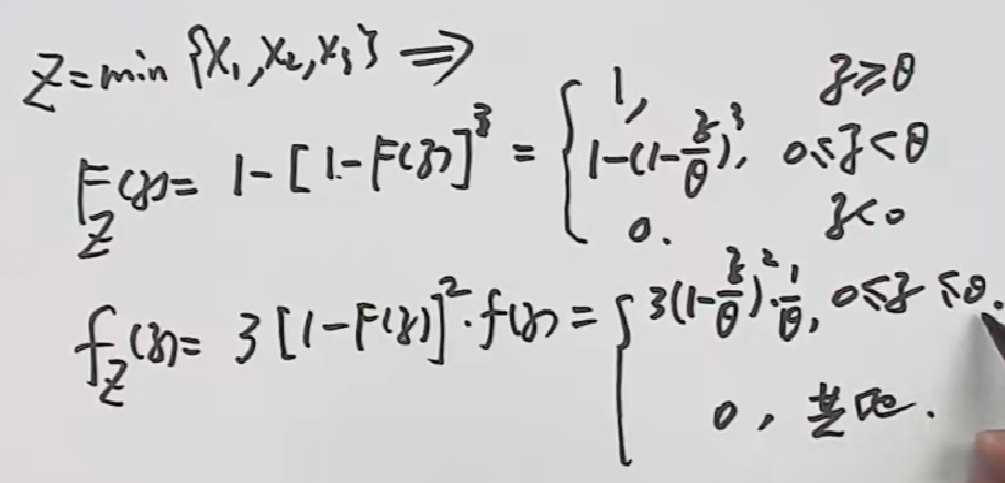 Z=min {X₁,X₂,X₃} ⟹
F_Z(z)= 1-[1-F(z)]³ = { 1, z≥θ
1-(1-z/θ)³, 0≤z<θ
0. z<0
f_Z(z)= 3[1-F(z)]²·f(z)= { 3(1-z/θ)²·1/θ, 0≤z≤θ.
0, 其他.